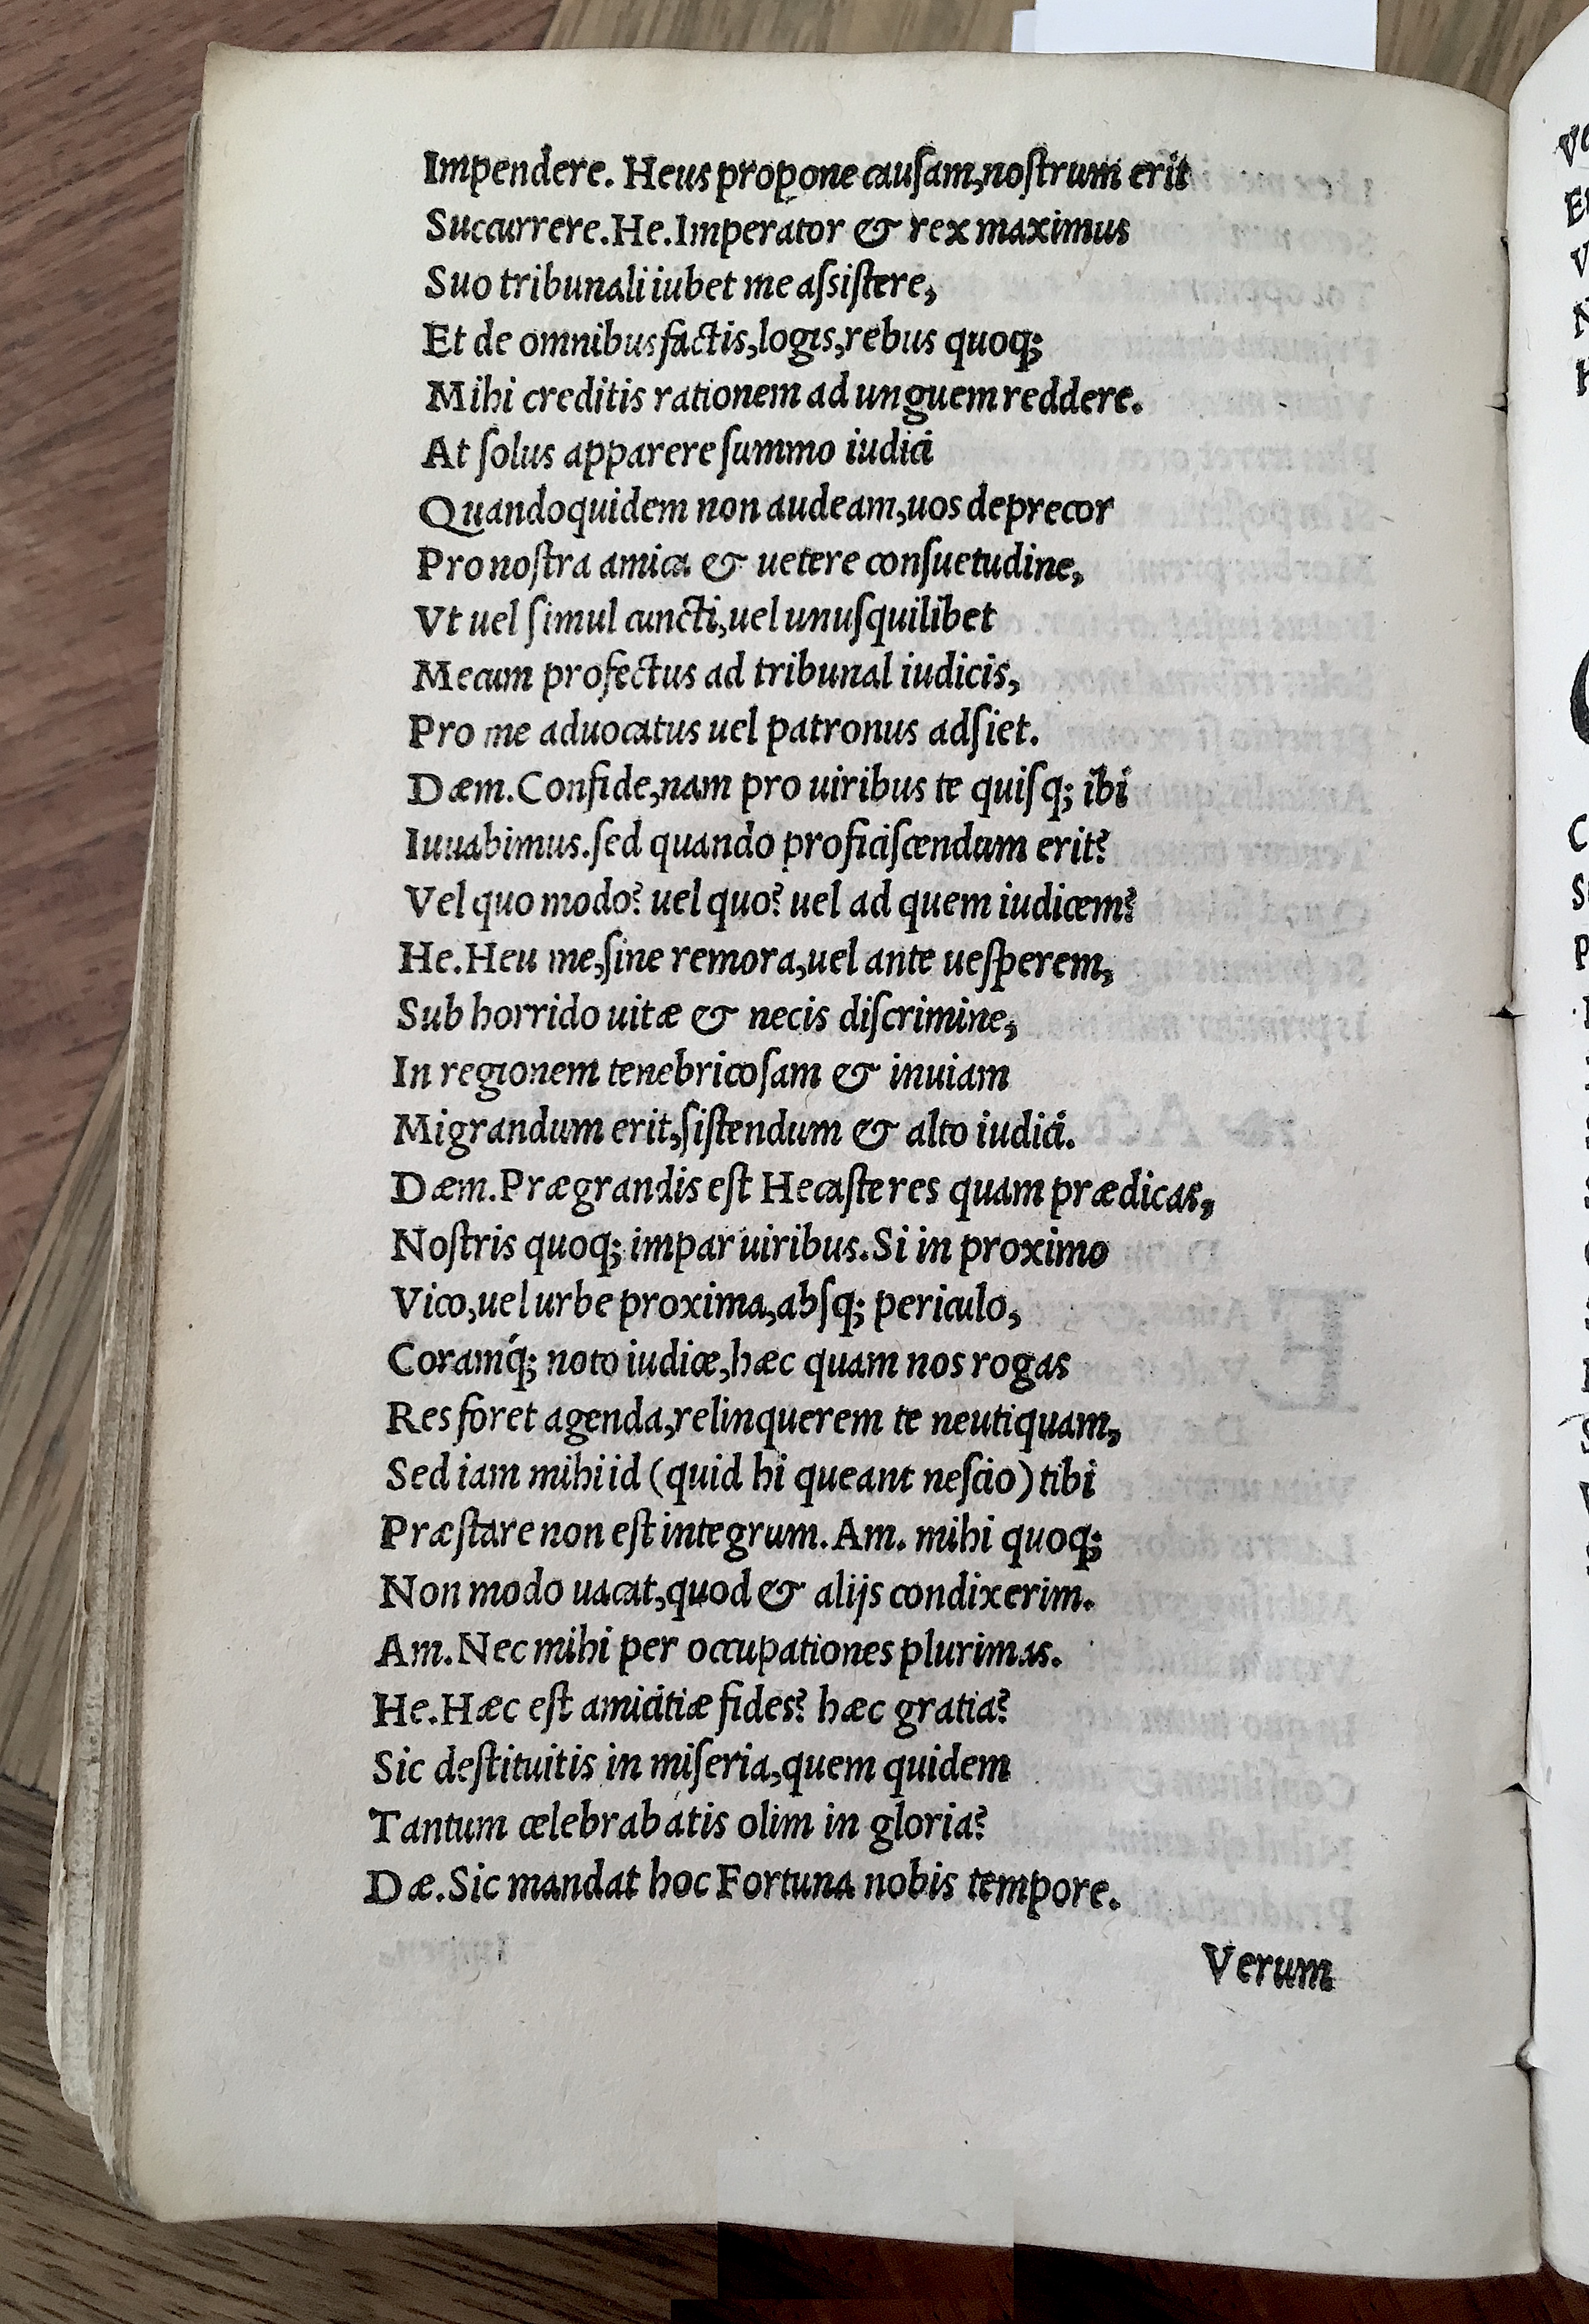 Impendere. Heus propone cauſam,noſtrum erit
Succurrere.He.Imperator & rex maximus
Suo tribunali iubet me aſsiſtere,
Et de omnibus factis,logis,rebus quoq;
Mihi creditis rationem ad unguem reddere.
At ſolus apparere ſummo iudici
Quandoquidem non audeam,uos deprecor
Pro noſtra amica & uetere conſuetudine,
Vt uel ſimul cuncti,uel unuſquilibet
Mecum profectus ad tribunal iudicis,
Pro me aduocatus uel patronus adſiet.
Dæm.Confide,nam pro uiribus te quiſq; ibi
Iuuabimus.ſed quando proficiſcendum erit?
Vel quo modo? uel quo? uel ad quem iudicem?
He.Heu me,ſine remora,uel ante ueſperem,
Sub horrido uitæ & necis diſcrimine,
In regionem tenebricoſam & inuiam
Migrandum erit,ſiſtendum & alto iudici.
Dæm.Prægrandis eſt Hecaſte res quam prædicas,
Noſtris quoq; impar uiribus.Si in proximo
Vico,uel urbe proxima,abſq; periculo,
Coramq́; noto iudice,hæc quam nos rogas
Res foret agenda,relinquerem te neutiquam,
Sed iam mihi id (quid hi queant neſcio) tibi
Præſtare non eſt integrum.Am. mihi quoq;
Non modo uacat,quod & alijs condixerim.
Am.Nec mihi per occupationes plurimas.
He.Hæc eſt amicitiæ fides? hæc gratia?
Sic deſtituitis in miſeria,quem quidem
Tantum celebrabatis olim in gloria?
Dæ.Sic mandat hoc Fortuna nobis tempore.
Verum